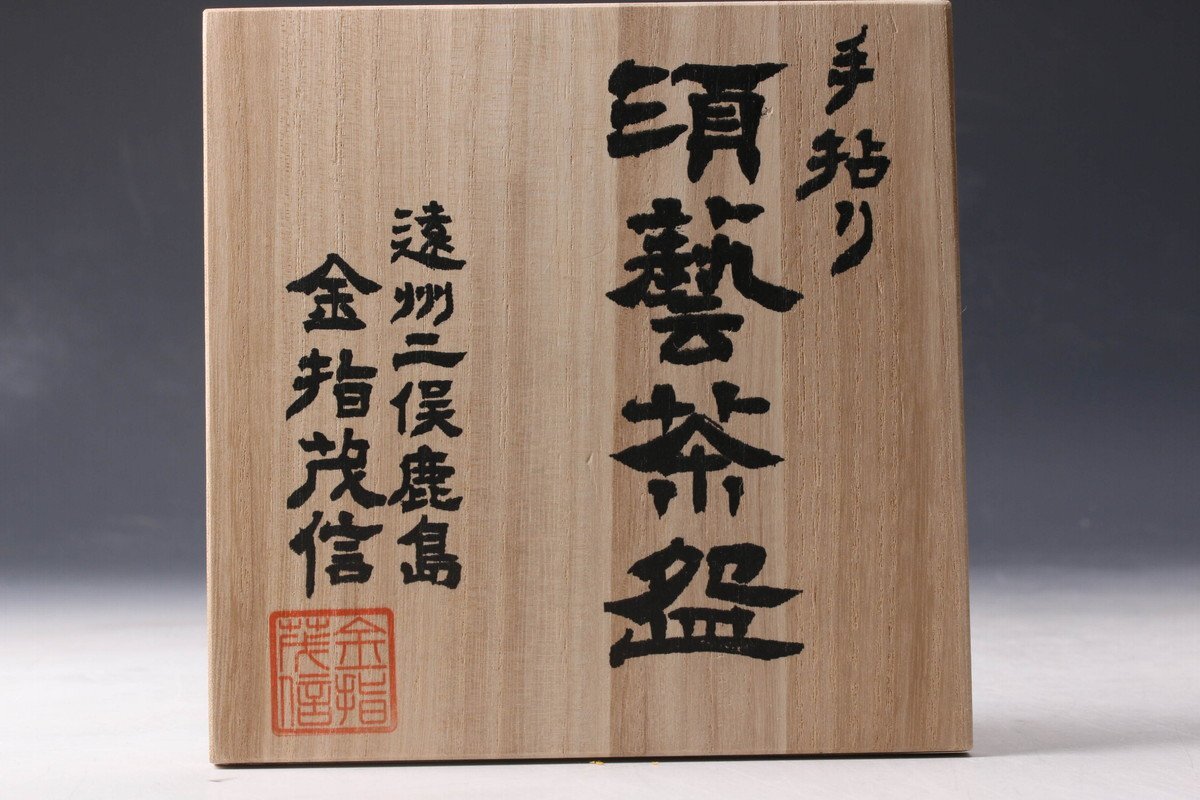 手拈り
須藝茶盌
遠州二俣鹿島
金指茂信
金指
茂信